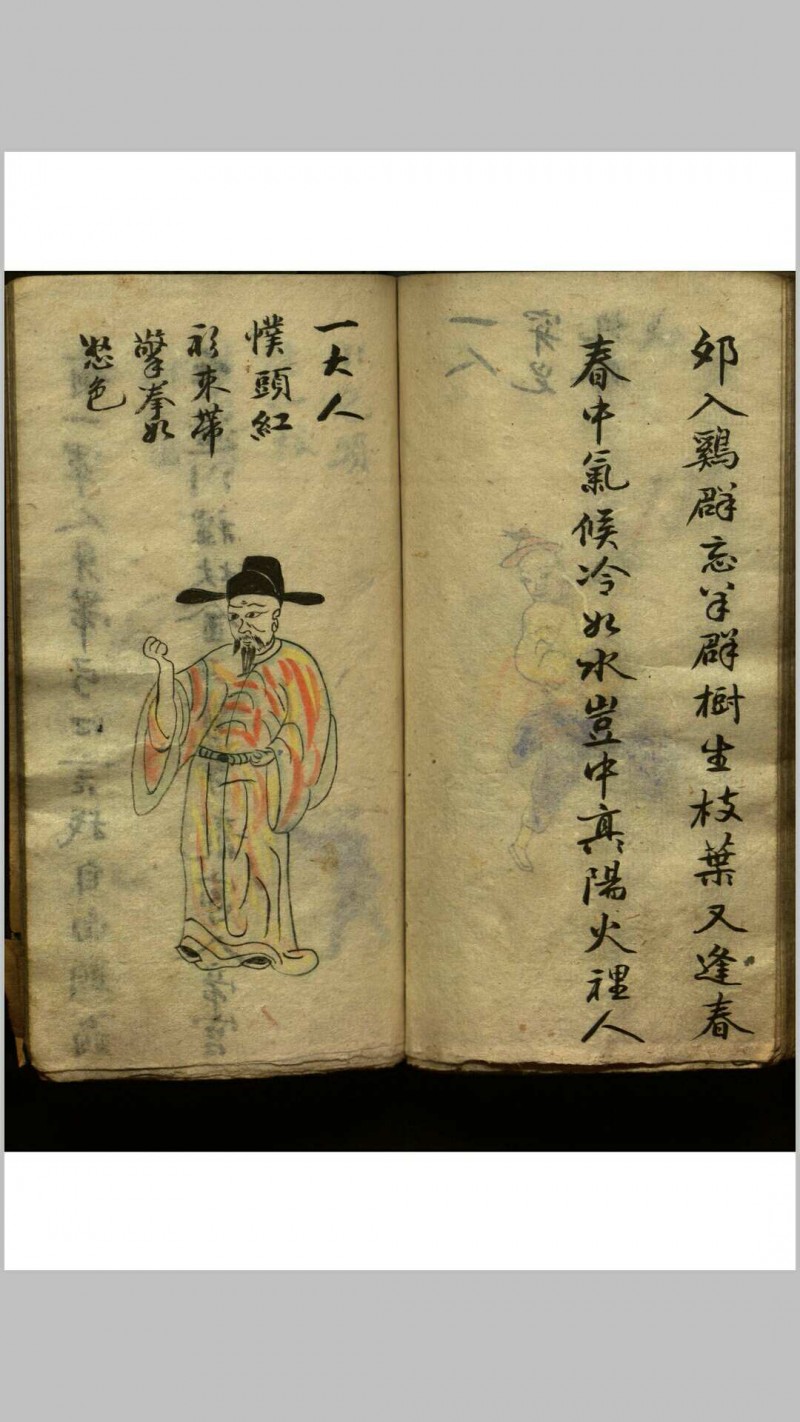 夘入鷄群忘羊群樹生枝葉又逢春
春中氣候冷如水豈中真陽火裡人
一大人
幞頭紅
衫束帶
擎拳如
怒色